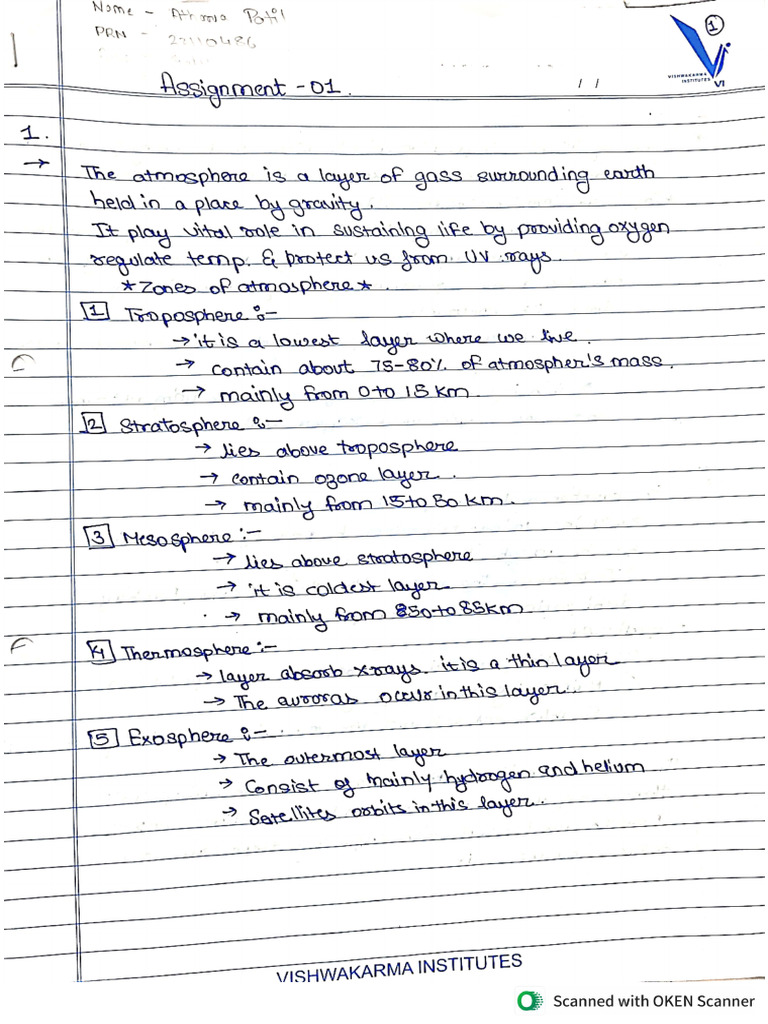 Name - Athrava Patil
PRN - 22110486
1
VISHWAKARMA
INSTITUTES
VI
Assignment - 01.
/ /
1.
→ The atmosphere is a layer of gass surrounding earth
held in a place by gravity.
It play vital role in sustaining life by providing oxygen
regulate temp. & protect us from UV rays.
*Zones of atmosphere*.
1 Troposphere :-
→ it is a lowest layer where we live.
→ contain about 75-80% of atmospher's mass.
→ mainly from 0 to 15 km.
2 Stratosphere :-
→ lies above troposphere
→ contain ozone layer.
→ mainly from 15 to 50 km.
3 Mesosphere :-
→ lies above stratosphere
→ it is coldest layer
→ mainly from 50 to 85km
4 Thermosphere :-
→ layer absorb x rays. it is a thin layer
→ The auroras occur in this layer.
5 Exosphere :-
→ The outermost layer
→ Consist of mainly hydrogen and helium
→ Satellites orbits in this layer.
VISHWAKARMA INSTITUTES
Scanned with OKEN Scanner